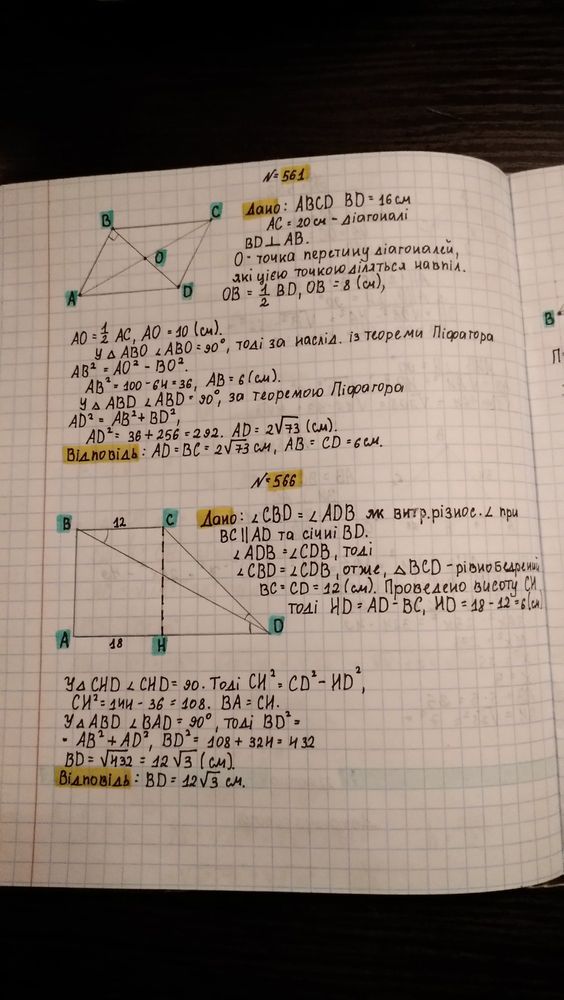 № 561
B C O A D
Дано: ABCD BD = 16 см
AC = 20 см - діагоналі
BD ⊥ AB.
O - точка перетину діагоналей,
які цією точкою діляться навпіл.
OB = 1/2 BD, OB = 8 (см),
AO = 1/2 AC, AO = 10 (см).
У △ ABO ∠ABO = 90°, тоді за наслід. із теореми Піфагора
AB² = AO² - BO².
AB² = 100 - 64 = 36, AB = 6 (см).
У △ ABD ∠ABD = 90°, за теоремою Піфагора
AD² = AB² + BD²,
AD² = 36 + 256 = 292. AD = 2√73 (см).
Відповідь: AD = BC = 2√73 см, AB = CD = 6 см.
№ 566
B 12 C
A 18 H D
Дано: ∠CBD = ∠ADB як внтр. різнос. ∠ при
BC || AD та січні BD.
∠ADB = ∠CDB, тоді
∠CBD = ∠CDB, отже, △BCD - рівнобедрений
BC = CD = 12 (см). Проведено висоту CH,
тоді HD = AD - BC, HD = 18 - 12 = 6 (см.
У △ CHD ∠CHD = 90. Тоді CH² = CD² - HD²,
CH² = 144 - 36 = 108. BA = CH.
У △ ABD ∠BAD = 90°, тоді BD² =
- AB² + AD², BD² = 108 + 324 = 432
BD = √432 = 12√3 (см).
Відповідь: BD = 12√3 см.
B
П